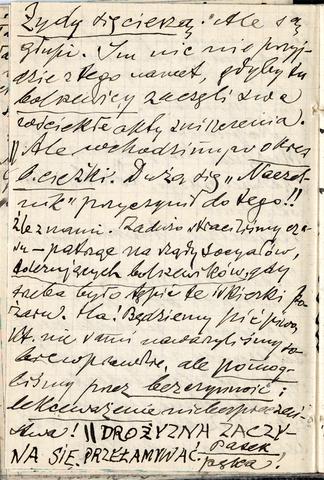 Żydy się cieszą. Ale są
głupi. Im nic nie przyj-
dzie z tego nawet, gdyby tu
bolszewicy zaczęli swa
rościekłe akty zniszczenia.
|| Ale wchodzimy w okres
b. ciężki. Dużo się „Naczel-
nik” przyczynił do tego!!
Źle z nami. Zadużo straciliśmy cza-
su – patrząc na rządy socyałów,
tolerujących bolszewików, gdy
trzeba było tępić te iskierki po-
żaru. Ha! Będziemy pić piwo,
kt. nie sami nawarzyliśmy so-
bie wprawdzie, ale pomog-
liśmy przez bezczynność i
lekceważenie niebezpieczeń-
stwa! || DROŻYZNA ZACZY-
NA SIĘ PRZEŁAMYWAĆ. Pasek